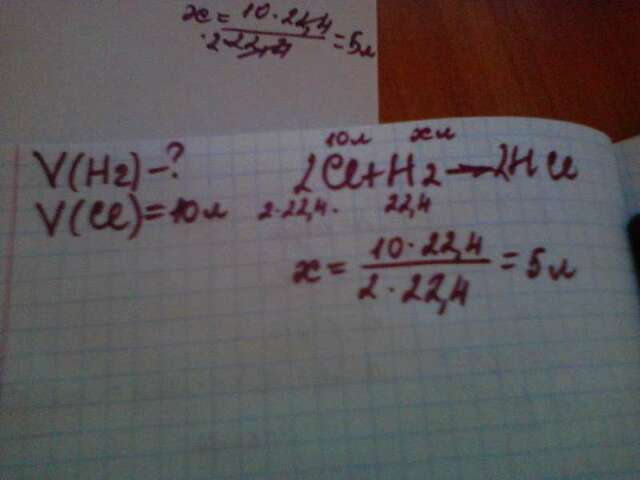 x = 10·22,4 / 2·22,4 = 5л
V(H2) - ?
10л xл
2Cl + H2 → 2HCl
V(Cl) = 10л
2·22,4. 22,4
x = 10·22,4 / 2·22,4 = 5л